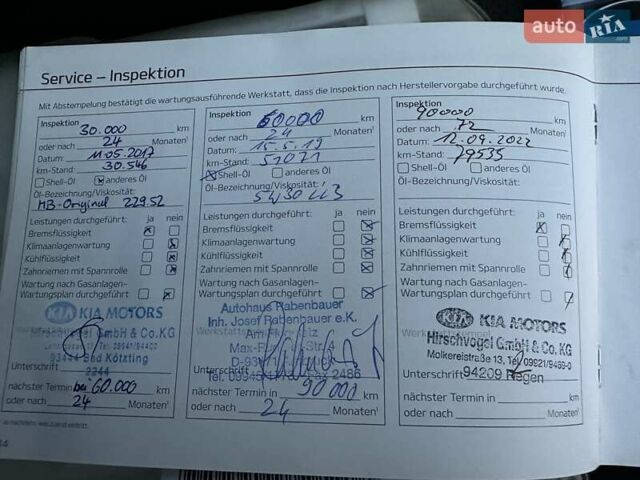 auto RIA .com
Service – Inspektion
Mit Abstempelung bestätigt die wartungsausführende Werkstatt, dass die Inspektion nach Herstellervorgabe durchgeführt wurde.
Inspektion
30.000 km
oder nach 24 Monaten¹
Datum: 11.05.2017
km-Stand: 30.546
Shell-Öl anderes Öl
Öl-Bezeichnung/Viskosität:
MB-Original 229.52
Leistungen durchgeführt: ja nein
Bremsflüssigkeit
Klimaanlagenwartung
Kühlflüssigkeit
Zahnriemen mit Spannrolle
Wartung nach Gasanlagen-
Wartungsplan durchgeführt
KIA MOTORS
GmbH & Co.KG
93444 Bad Kötzting
Unterschrift
nächster Termin bei 60.000 km
oder nach 24 Monaten¹
Inspektion
60000 km
oder nach 24 Monaten¹
Datum: 15.5.19
km-Stand: 51071
Shell-Öl anderes Öl
Öl-Bezeichnung/Viskosität:
5W30 LL3
Leistungen durchgeführt: ja nein
Bremsflüssigkeit
Klimaanlagenwartung
Kühlflüssigkeit
Zahnriemen mit Spannrolle
Wartung nach Gasanlagen-
Wartungsplan durchgeführt
Autohaus Rabenbauer
Inh. Josef Rabenbauer e.K.
Unterschrift
nächster Termin in 90000 km
oder nach 24 Monaten¹
Inspektion
90000 km
oder nach 72 Monaten¹
Datum: 12.09.2022
km-Stand: 79535
Shell-Öl anderes Öl
Öl-Bezeichnung/Viskosität:
Leistungen durchgeführt: ja nein
Bremsflüssigkeit
Klimaanlagenwartung
Kühlflüssigkeit
Zahnriemen mit Spannrolle
Wartung nach Gasanlagen-
Wartungsplan durchgeführt
KIA MOTORS
Hirschvogel GmbH & Co. KG
Molkereistraße 13, Tel. 09921/9466-0
94209 Regen
Unterschrift
nächster Termin in km
oder nach Monaten¹